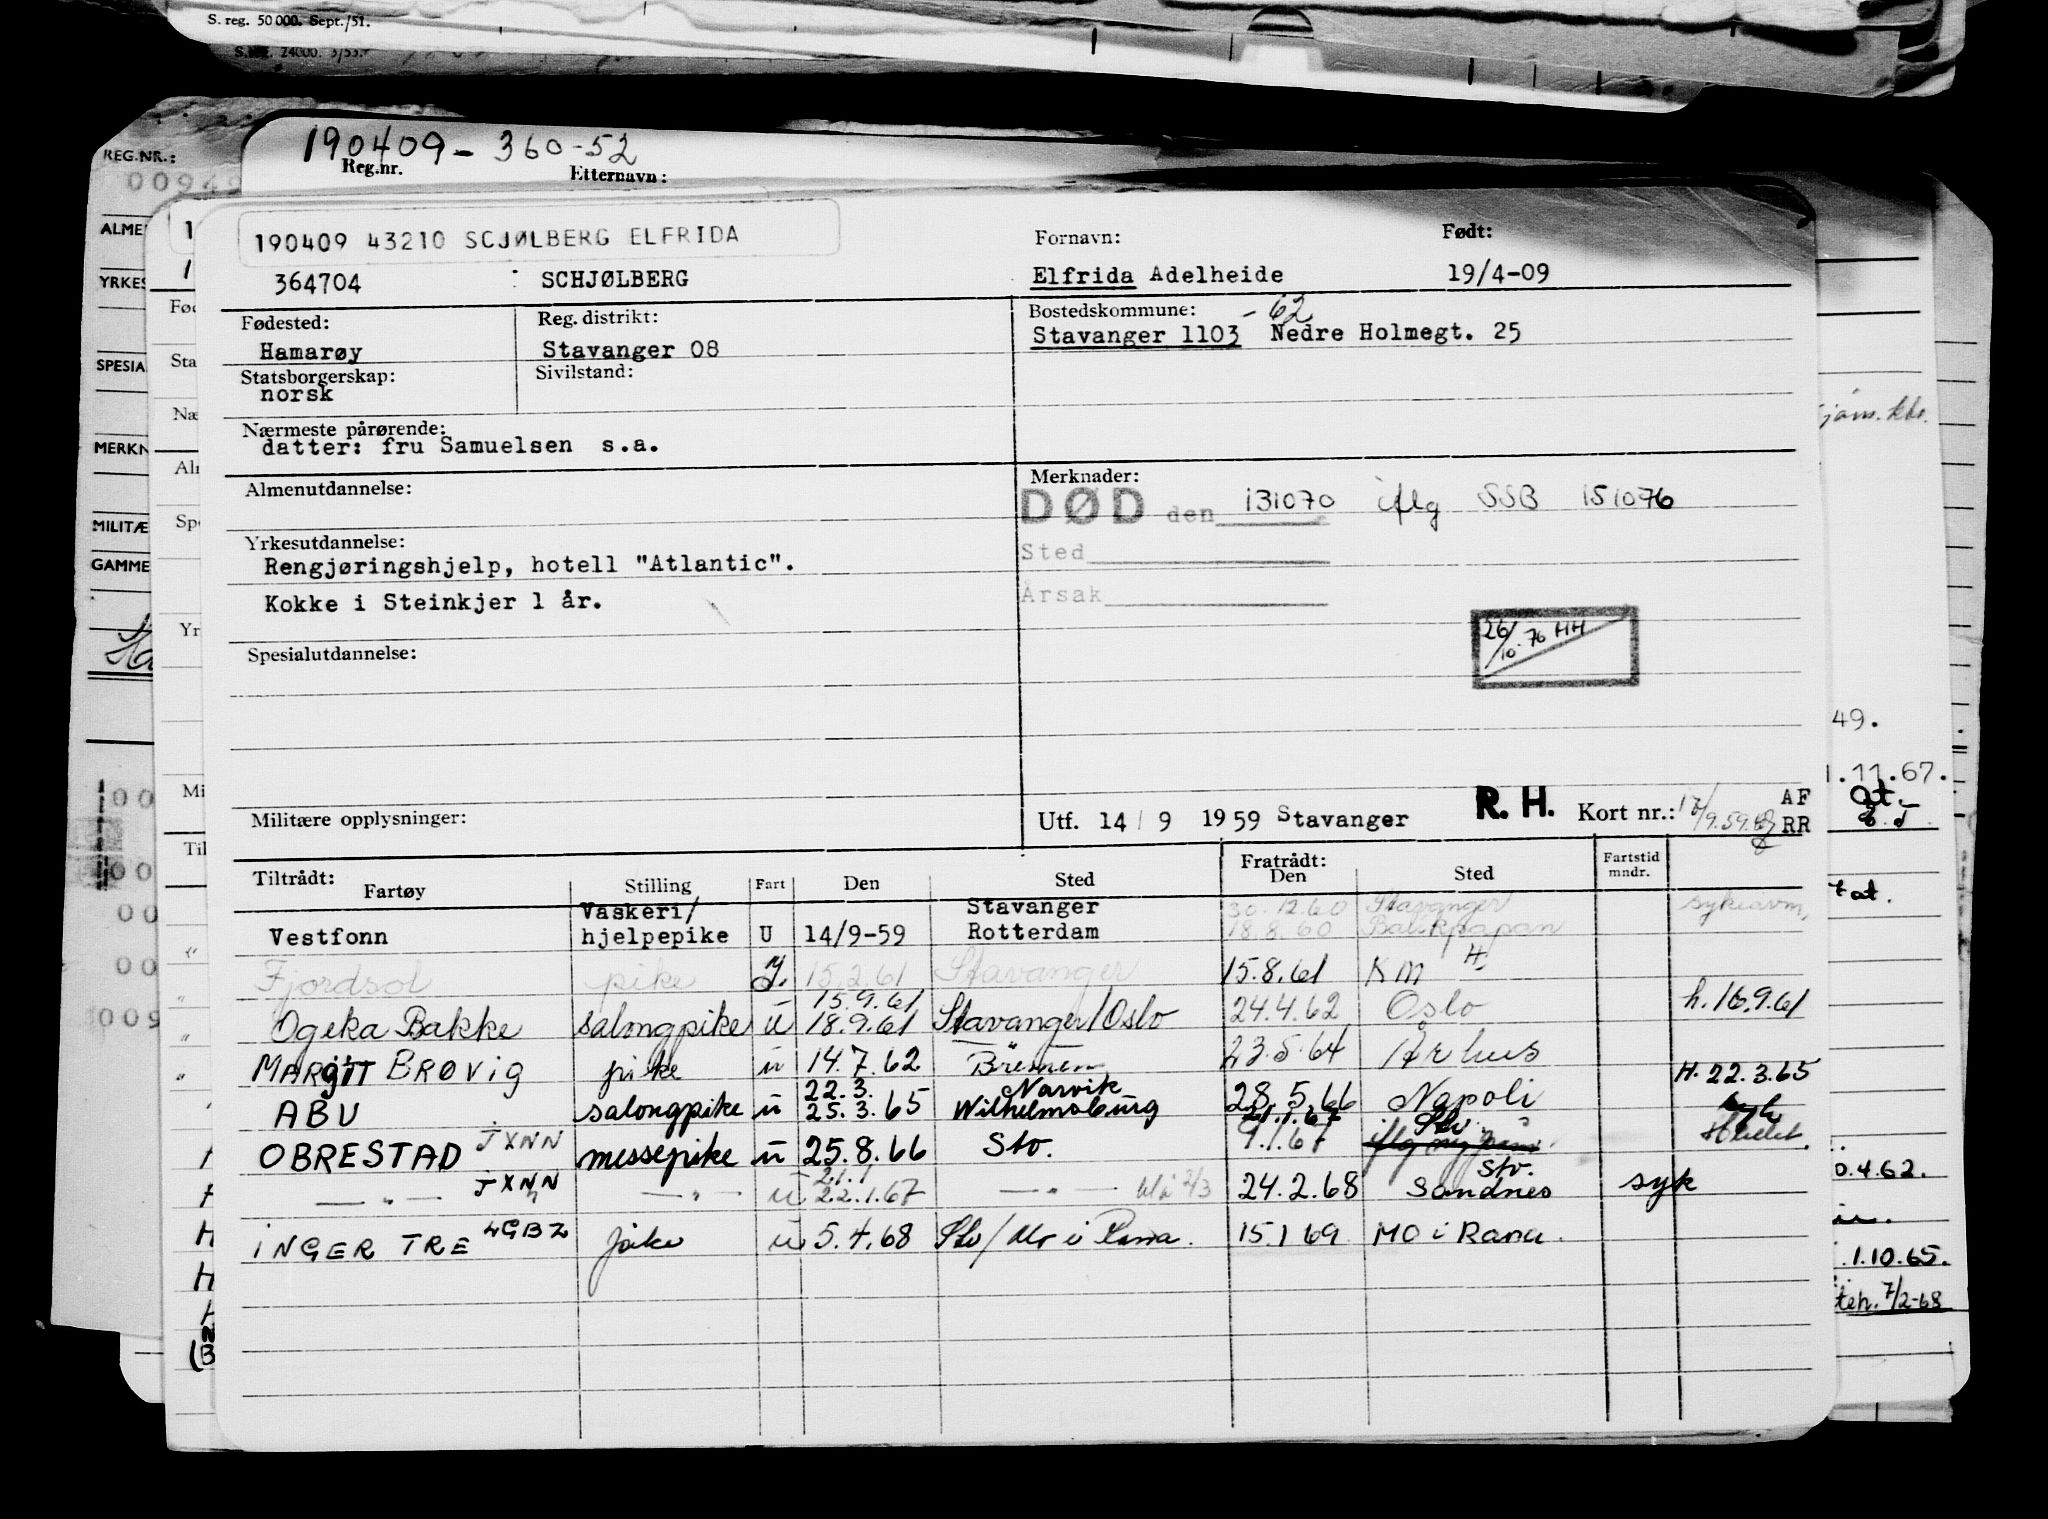 S. reg. 50 000. Sept./51.
190409 - 360-52
REG.NR.:
Reg.nr.
Etternavn:
190409 43210 SCJØLBERG ELFRIDA
Fornavn:
Født:
364704
SCHJØLBERG
Elfrida Adelheide
19/4-09
Fødested:
Reg. distrikt:
Bostedskommune:
- 62
Hamarøy
Stavanger 08
Stavanger 1103 Nedre Holmegt. 25
Statsborgerskap:
Sivilstand:
norsk
Nærmeste pårørende:
datter: fru Samuelsen s.a.
Almenutdannelse:
Merknader:
DØD den 131070 iflg SSB 151076
Yrkesutdannelse:
Sted
Rengjøringshjelp, hotell "Atlantic".
Årsak
Kokke i Steinkjer 1 år.
26/10.76 HH
Spesialutdannelse:
Militære opplysninger:
Utf. 14/9 1959 Stavanger
R. H.
Kort nr.:
AF
RR
Tiltrådt:
Fratrådt:
Fartøy Stilling Fart Den Sted Den Sted Fartstid mndr.
Vaskeri/ Stavanger 30.12.60 Stavanger sykeavm,
Vestfonn hjelpepike U 14/9-59 Rotterdam 18.8.60 Balikpapan
Fjordsol pike 15.2.61 Stavanger 15.8.61 KM H.
15.9.61
Ogeka Bakke salongpike u 18.9.61 Stavanger/Oslo 24.4.62 Oslo h. 16.9.61
MARGIT BRØVIG pike u 14.7.62 Bremen 23.5.64 Århus
22.3. Narvik H. 22.3.65
ABU salongpike u 25.3.65 Wilhelmsburg 28.5.66 Napoli
21.1.67 Stv.
OBRESTAD JXNN messepike u 25.8.66 Stv. 9.1.67
21.1 Stv.
— " — JXNN — " — u 22.1.67 — " — 24.2.68 Sandnes syk
INGER TRE LGBZ pike u 5.4.68 Stv/Mo i Rana. 15.1 69 MO i Rana.
49.
1.11.67.
0.4.62.
1.10.65.
7/2-68